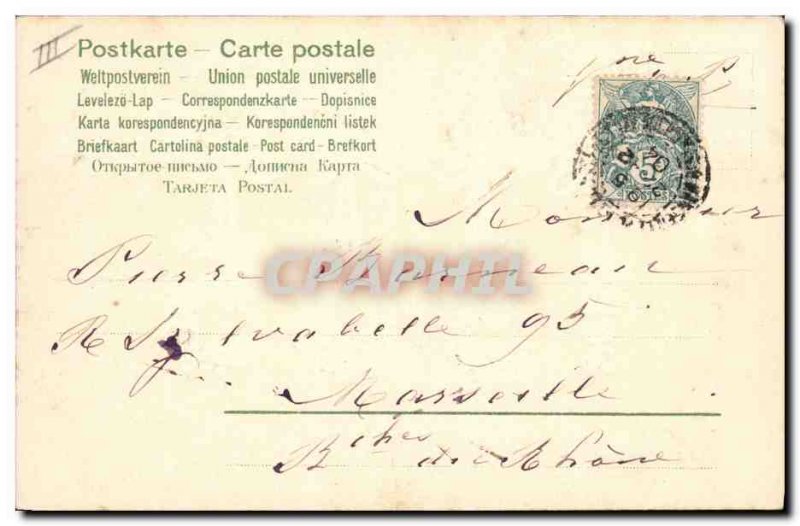 III
Postkarte — Carte postale
Weltpostverein — Union postale universelle
Levelezö-Lap — Correspondenzkarte — Dopisnice
Karta korespondencyjna — Korespondenčni listek
Briefkaart - Cartolina postale - Post card - Brefkort
Открытое письмо — Дописна Карта
TARJETA POSTAL
Monsieur
Pierre
CPAPHIL
95
Marseille
Bches du Rhône